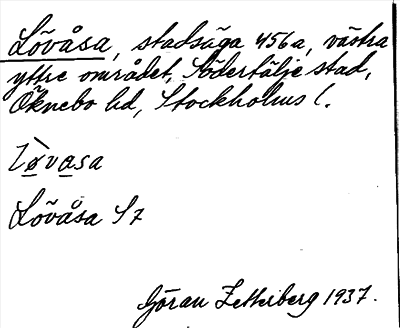 Lövåsa, stadsäga 456a, västra
yttre området, Södertälje stad,
Öknebo hd, Stockholms l.
Lø̀vasa
Lövåsa S7
Göran Zetterberg 1937.